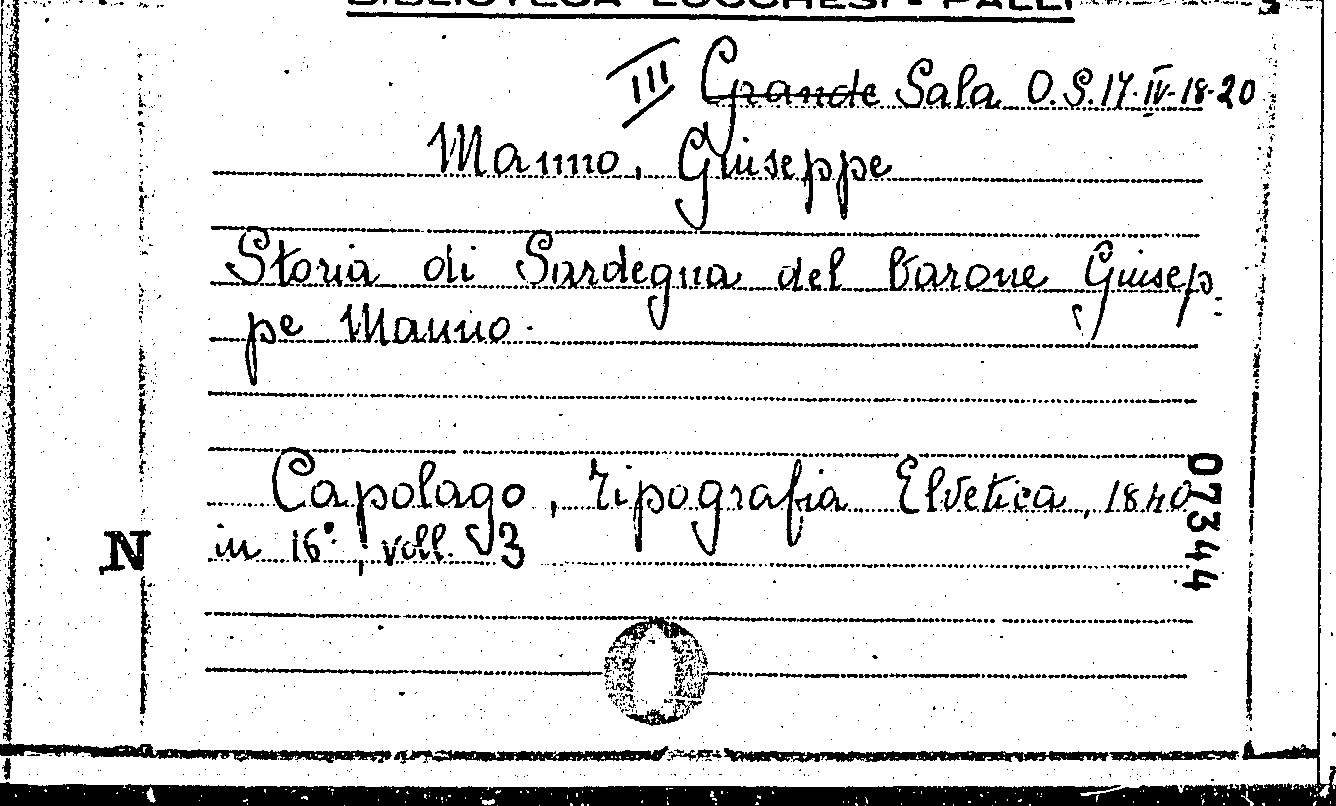 BIBLIOTECA LUCCHESI - PALLI
III Grande Sala O.S.17.IV.18-20
Manno, Giuseppe
Storia di Sardegna del barone Giusep-
pe Manno.
Capolago, Tipografia Elvetica, 1840
in 16°, voll. 3
N
07344